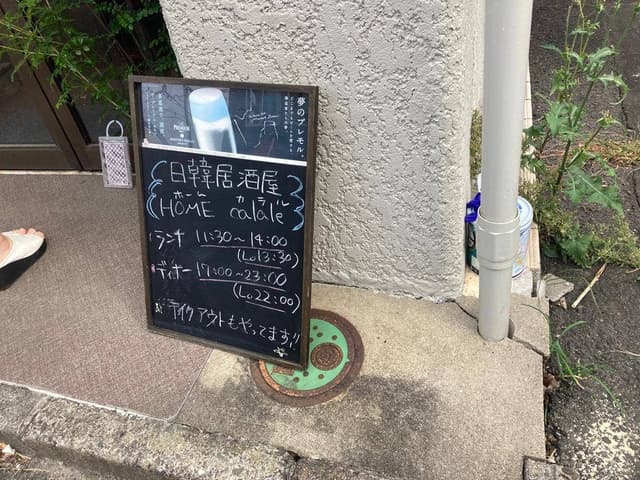 夢のプレモル。
日韓居酒屋
ホーム カラル
HOME calale
ランチ 11:30〜14:00
(Lo13:30)
ディナー 17:00〜23:00
(Lo22:00)
テイクアウトもやってます!!